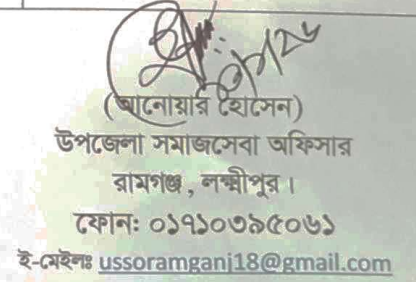 (আনোয়ার হোসেন)
উপজেলা সমাজসেবা অফিসার
রামগঞ্জ, লক্ষ্মীপুর।
ফোন: ০১৭১০৩৯৫০৬১
ই-মেইলঃ ussoramganj18@gmail.com